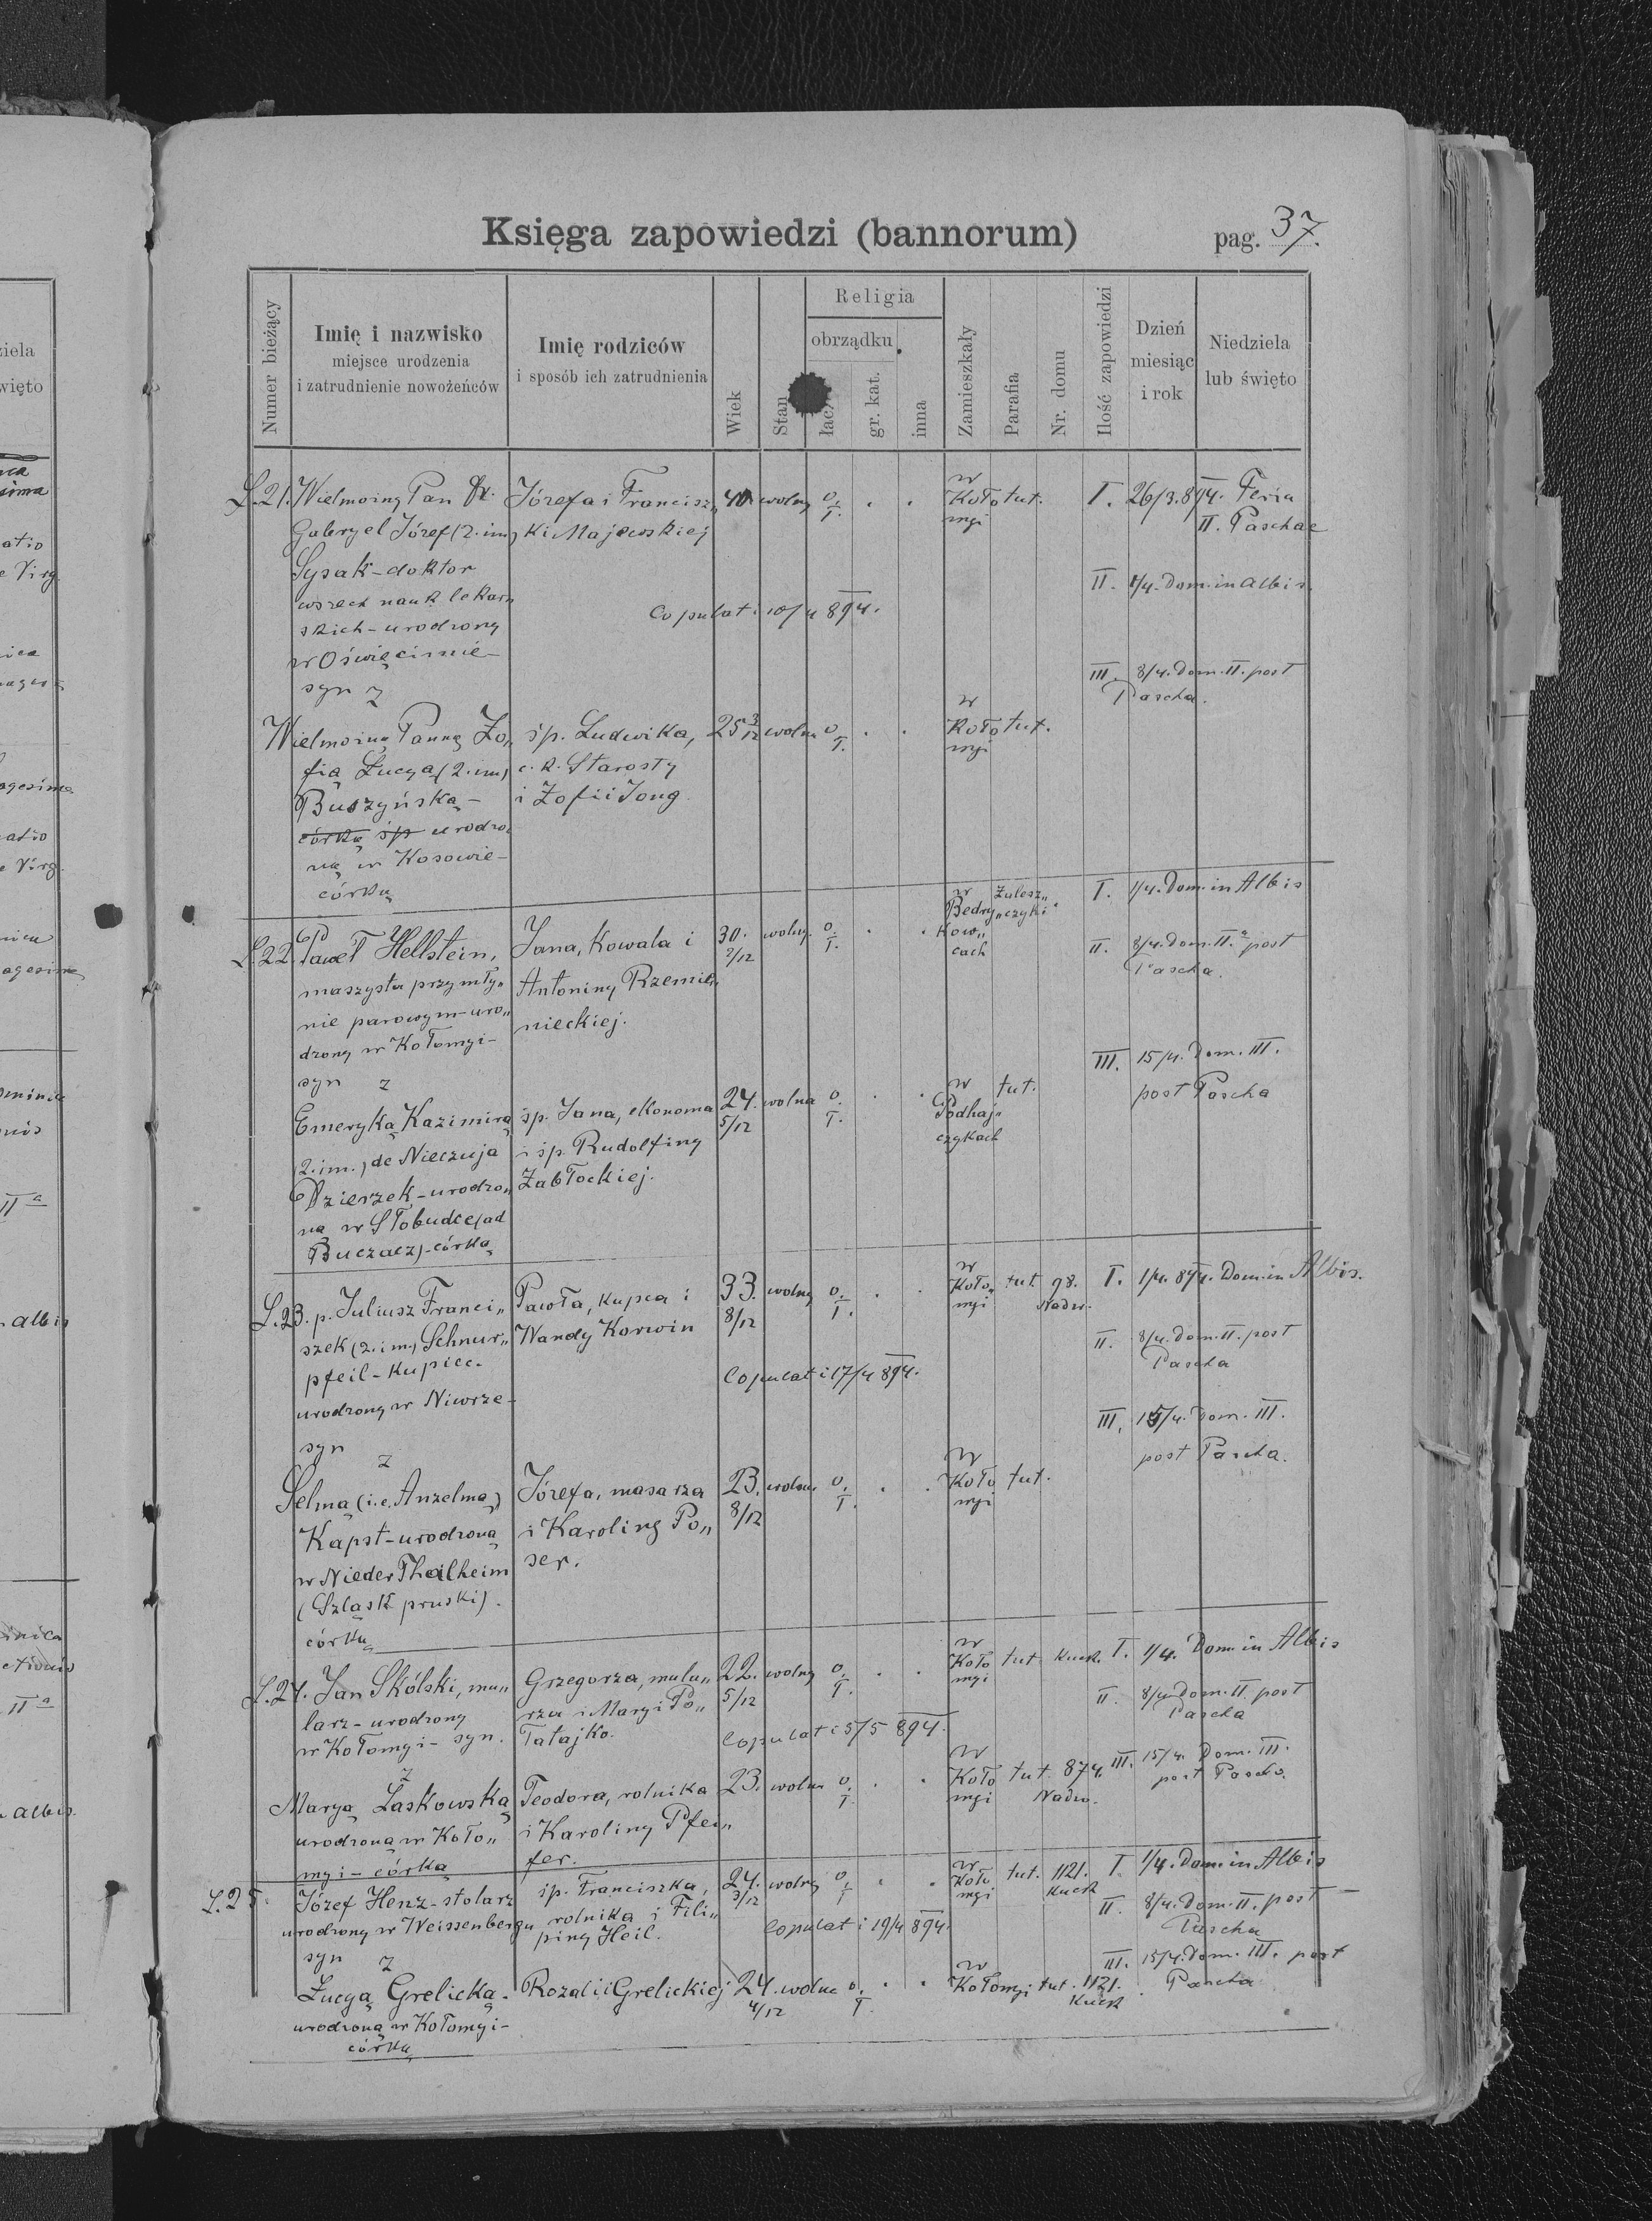 Księga zapowiedzi (bannorum) pag. 37.
Numer bieżący
Imię i nazwisko
miejsce urodzenia
i zatrudnienie nowożeńców
Imię rodziców
i sposób ich zatrudnienia
Wiek
Stan
Religia
obrządku
łac.
gr. kat.
inna
Zamieszkały
Parafia
Nr. domu
Ilość zapowiedzi
Dzień
miesiąc
i rok
Niedziela
lub święto
L.21. Wielmożny Pan Dr. Józefa i Francisz„ 40. wolny o. . . w Koło tut. I. 26/3.894. Feria
Gabryel Józef (2. im.) ki Majewskiej ł. myi II. Paschae
Sysak - doktor
wszech nauk lekar„ II. 1/4. Dom. in Albis.
skich - urodzony Copulati 10/4 894.
w Oświęcimie -
syn z III. 8/4. Dom. II. post
Pascha.
Wielmożną Panną Zo„ śp. Ludwika, 25 3/12 wolna o. . . w Koło tut.
fią Łucyą (2. im.) c. k. Starosty ł. myi
Buszyńską - i Zofii Jong
córką śp urodzo„
ną w Kosowie -
córką
L.22. Paweł Hellstein, Jana, Kowala i 30. wolny. o. . . w Bedry„ Zalesz„ I. 1/4. Dom. in Albis
maszysta przy mły„ Antoniny Rzemie„ 2/12 ł. kow„ czyki II. 8/4. Dom. II.a post
nie parowym - uro„ nieckiej. cach Pascha.
drony w Kołomyi -
syn z III. 15/4. Dom. III.
post Pascha
Emeryką Kazimirą śp. Jana, ekonoma 24. wolna o. . . w Podhaj„ tut.
(2. im.) de Nieczuja i śp. Rudolfiny 5/12 ł. czykach
Dzierzek - urodzo„ Zabłockiej.
ną w Słobudce (ad
Buczacz) - córką
L.23. p. Juliusz Franci„ Pawła, kupca i 33. wolny o. . . w Koło„ tut 98. I. 1/4. 894. Dom. in Albis.
szek (2. im.) Schnur„ Wandy Korwin 8/12 ł. myi Nadw.
pfeil - kupiec. II. 8/4. Dom. II. post
urodzony w Niwrze - Copulati 17/4 894. Pascha
syn z III. 15/4. Dom. III.
post Pascha.
Selmą (i. e. Anzelmą) Józefa, masarza 23. wolna o. . . w Koło tut.
Kapst - urodzoną i Karoliny Po„ 8/12 ł. myi
w Nieder Thalheim ser.
(Szląsk pruski).
córką
L.24. Jan Skólski, mu„ Grzegorza, mula„ 22. wolny o. . . w Koło tut. Kuck. I. 1/4. Dom. in Albis
larz - urodzony rza i Maryi Po„ 5/12 ł. myi II. 8/4. Dom. II. post
w Kołomyi - syn. łatajko. Copulati 5/5 894. Pascha
z
Maryą Laskowską Teodora, rolnika 23. wolna o. . . w Koło tut. 874. III. 15/4. Dom. III.
urodzoną w Koło„ i Karoliny Pfei„ ł. myi Nadw. post Pascha.
myi - córką fer.
L.25. Józef Henz - stolarz śp. Franciszka, 24. wolny o. . . w Koło tut. 1121. I. 1/4. Dom. in Albis
urodzony w Weissenbergu rolnika i Fili„ 3/12 ł. myi Kuck II. 8/4. Dom. II. post
syn z piny Heil. Copulati 19/4 894. Pascha
III. 15/4. Dom. III. post
Łucyą Grelicką - Rozalii Grelickiej 24. wolna o. . . w Kołomyi tut. 1121. Pascha
urodzoną w Kołomyi - 4/12 ł. Kuck
córką